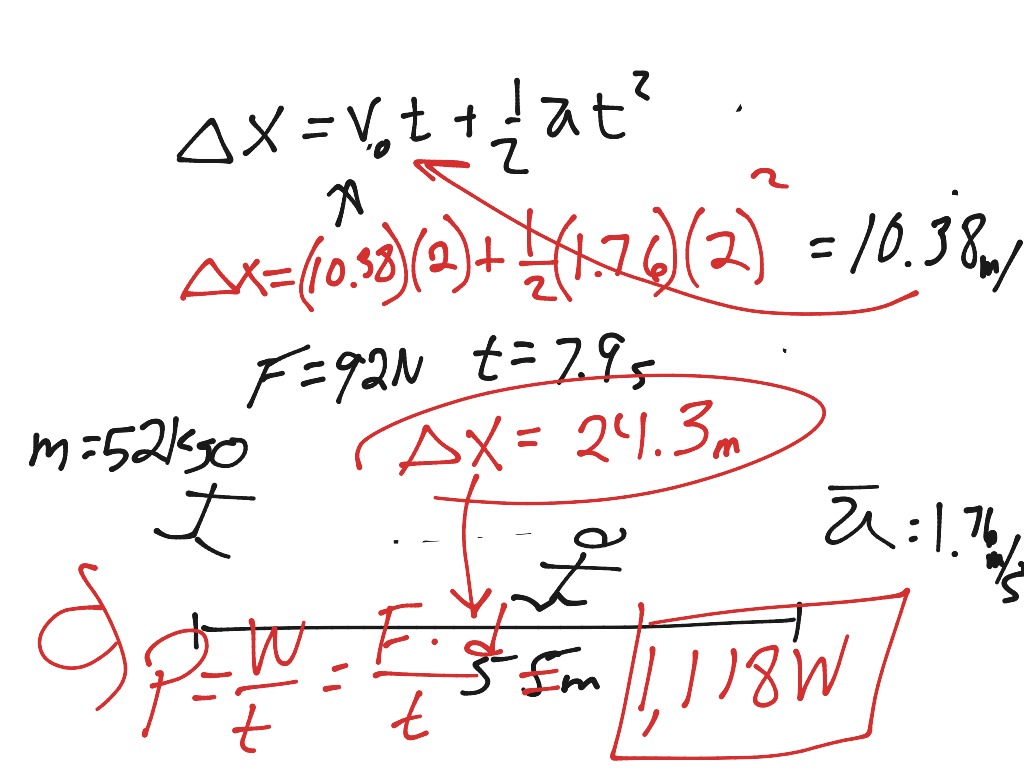 Δx = v₀t + 1/2 at²
Δx = (10.38)(2) + 1/2 (1.76)(2)² = 10.38 m/
F = 92N t = 7.9s
m = 52kg
Δx = 24.3m
a̅ = 1.76 m/s
d)
P = W/t = F·d/t
55m
1,118W